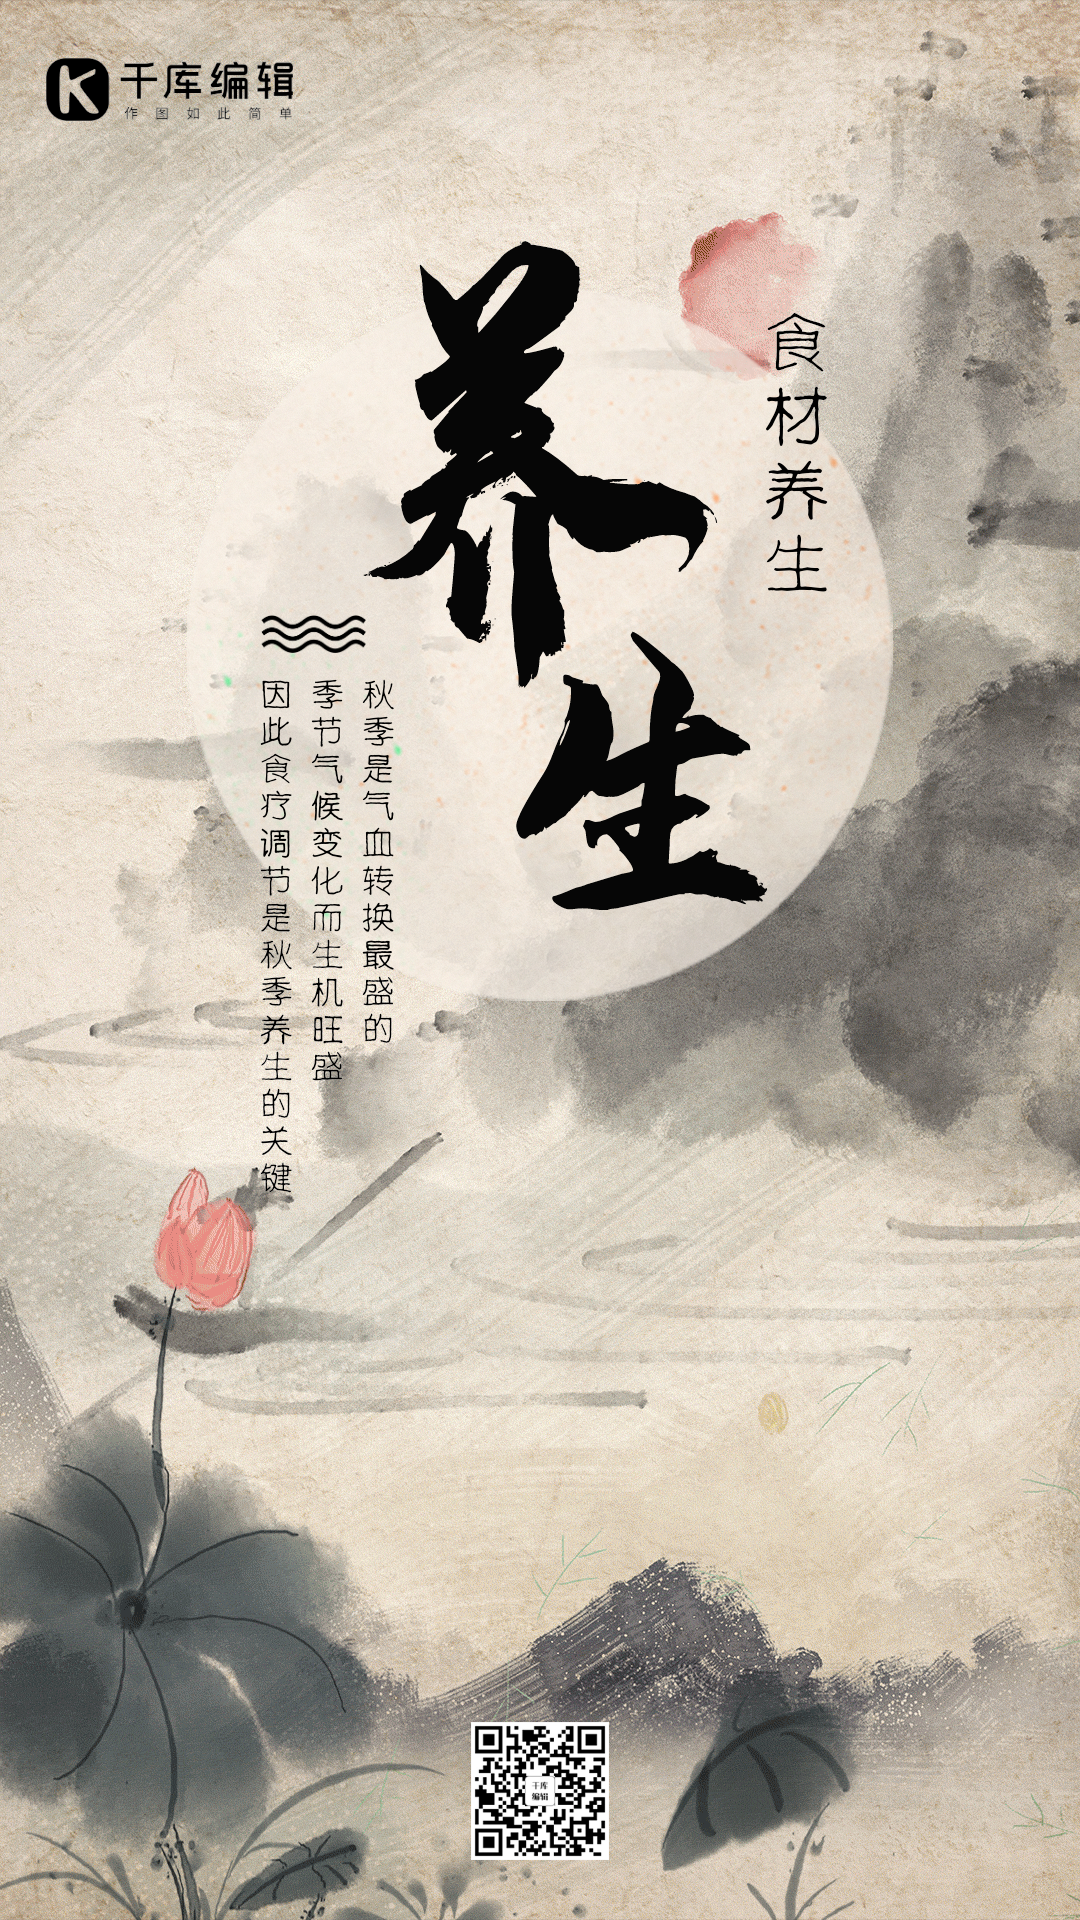 千库编辑
作图如此简单
养生
食材养生
秋季是气血转换最盛的
季节气候变化而生机旺盛
因此食疗调节是秋季养生的关键
千库
编辑